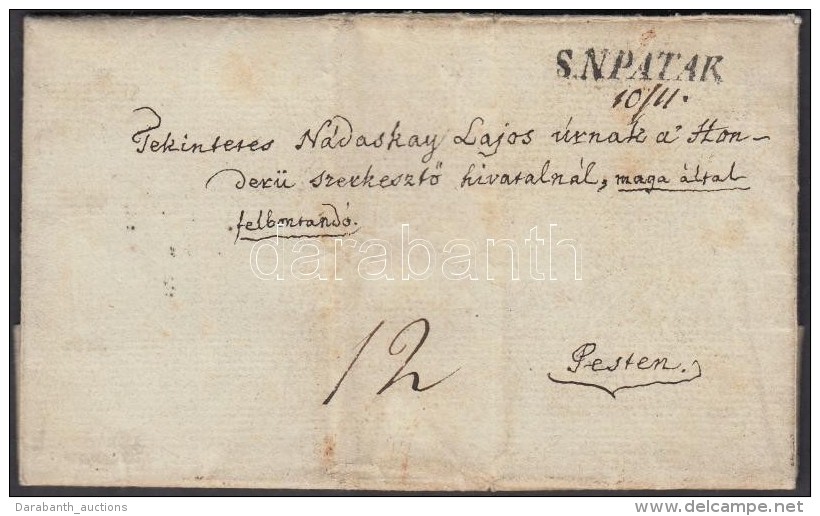 S.N.PATAK
10/11.
Tekintetes Nádaskay Lajos úrnak a' Hon-
derü szerkesztő hivatalnál, maga által
felbontandó.
darabanth
12
Pesten.
Darabanth_auctions
delcampe.net